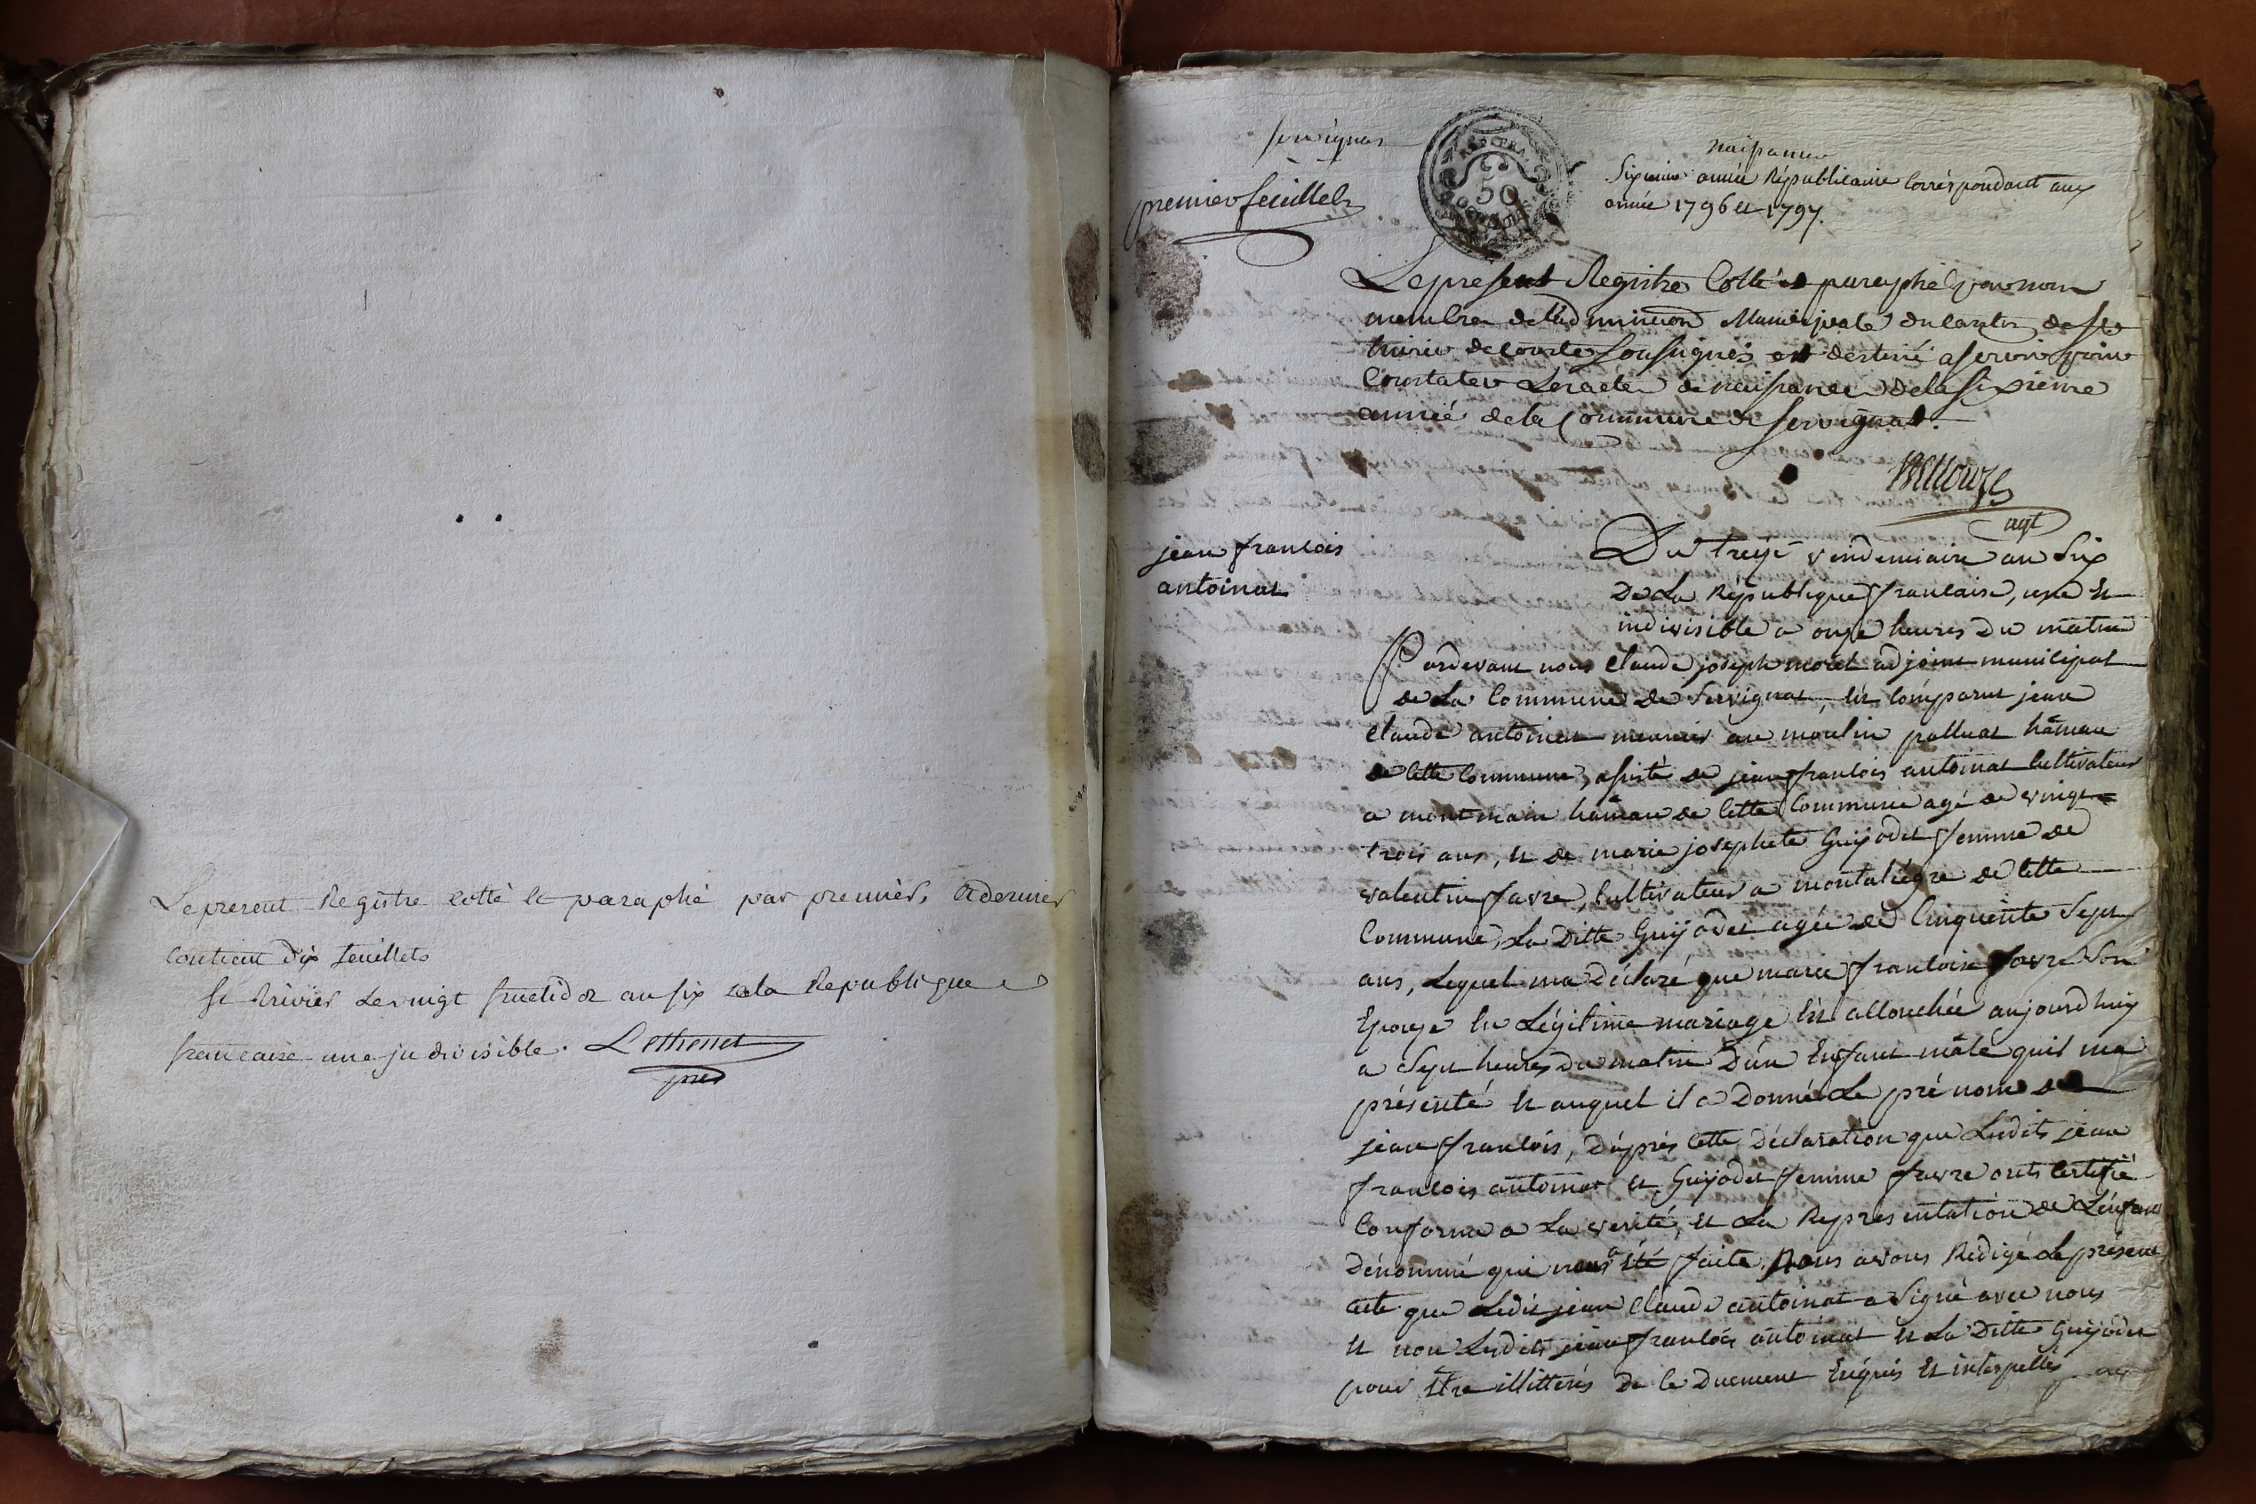 Le present Registre cotté et paraphé par premier, et dernier
contient dix feuillets
St Trivier le vingt fructidor an six de la Republique
francaise une indivisible.
servignat
premier feuillet
naissance
Sixieme année Républicaine Correspondant aux
année 1796 et 1797.
50
Le present Registre Cotté et parephé par nous
membre de l'adminiōn Municipale du canton de St
trivier de courtes soussignés est destiné a servir pour
Constater Les actes de naissance de la sixieme
année de la Commune de servignat.
agt
jean francois
antoinat
Du treize vendemiaire an six
De La République francaise, une et
indivisible a onze heures du matin
Pardevant nous Claude joseph morel adjoint municipal
de La Commune de Servignat, est comparut jean
Claude antoinat meunier au moulin palluat hâmau
de cette Commune, assisté de jean francois antoinat cultivateur
a montmain hâmau de cette Commune agé de vingt=
trois ans, et de marie josephete Guyodet femme de
valentin favre, cultivateur a montaliègre de cette
Commune, La Ditte Guyodet agée de Cinquente Sept
ans, Lequel ma Déclaré que marie francoise favre Son
Epouze En Légitime mariage Est accouchée aujourd'huy
a Sept heures du matin D'un Enfant mâle quil ma
présenté et auquel il a Donné Le prénom de
jean francois, D'après cette Déclaration que Lesdits jean
francois antoinat et Guyodet femme favre onts certifié
Conforme a La verité, et La Representation de L'enfant
Dénommé qui nous a été faite, Nous avons Rédigé Le présent
acte que Ledit jean Claude antoinat a Signé avec nous
et non Lesdits jean francois antoinat et La Ditte Guyodet
pour être illittérés de ce Duement Enquis Et interpellés